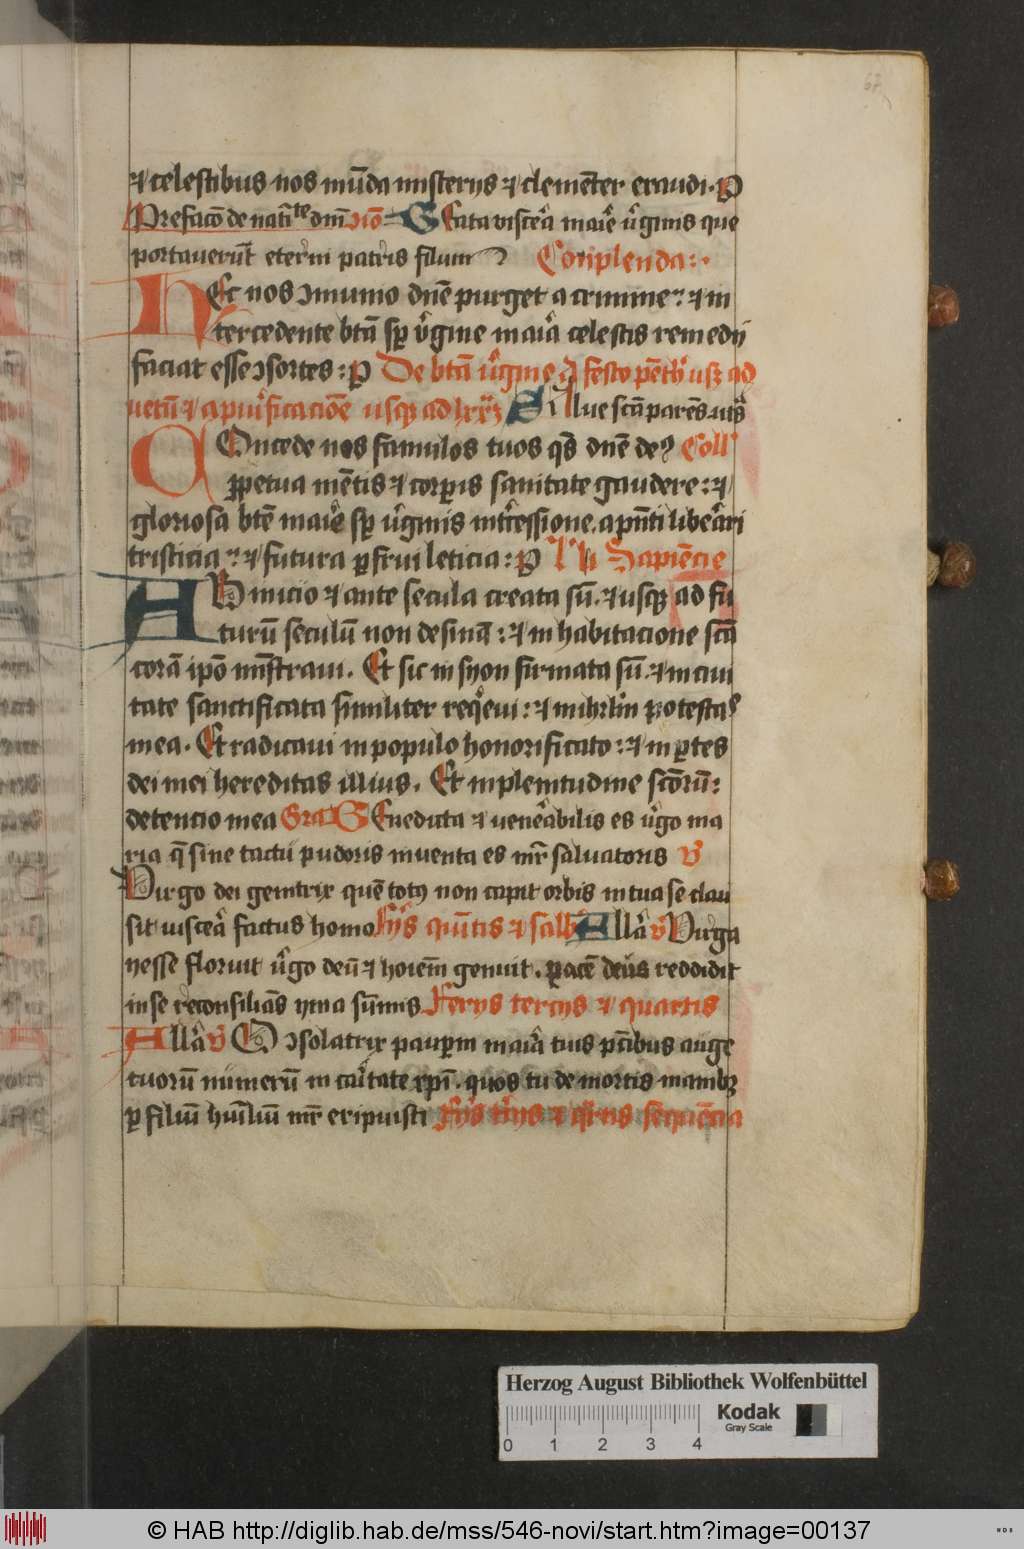 67
⁊ celestibus nos mūda misterijs ⁊ clemēter exaudi. P
Prefacō de natiᵗᵉ dnī ɔiō Beata viscēa marie ūginis que
portauerūt eterni patris filium Conplenda:·
HEc nos ɔmunio dnē purget a crimine: ⁊ in
tercedente btā sp ūgine maiā celestis remedij
faciat esse ɔsortes: P De btā ūgine a festo pēth usq ad
uetū ⁊ a purificacione usq ad Salue scā parēs
COncede nos famulos tuos qs dnē de⁹ Coll
ꝑpetua mētis ⁊ corꝑis sanitate gaudere: ⁊
gloriosa btē maie sp ūginis intercessione. a pn̄ti liberari
tristicia: ⁊ futura ꝑfrui leticia: P Sapiēcie
AB inicio ⁊ ante secula creata sū. ⁊ usq ad fu
turū seculū non desinā: ⁊ in habitacione scā
corā ipō ministraui. Et sic in syon firmata sū. ⁊ in ciui
tate sanctificata similiter reqeui: ⁊ in ihrlm potestas
mea. Et radicaui in populo honorificato: ⁊ in ꝑtes
dei mei hereditas illius. Et in plenitudine scōrū:
detencio mea Gra BEnedicta ⁊ uenerabilis es ūgo ma
ria q̄ sine tactu pudoris inuenta es mr̄ saluatoris V
Virgo dei genitrix quē totꝰ non capit orbis in tua se clau
sit uiscēa factus homo Fijs quītis ⁊ salb Allā V Virga
yesse floruit ūgo deū ⁊ hoiem genuit. pacē deus reddidit
in se reconsiliās yma sūmis Ferijs tercijs ⁊ quartis
Allā V O ɔsolatrix pauꝑm maiā tuis pcībus auge
tuorū numerū in caritate xpī. quos tu de mortis manibꝫ
ꝑ filiū hūilium mr̄ eripuisti Fijs sequēcia
Herzog August Bibliothek Wolfenbüttel
0 1 2 3 4
Kodak
Gray Scale
© HAB http://diglib.hab.de/mss/546-novi/start.htm?image=00137